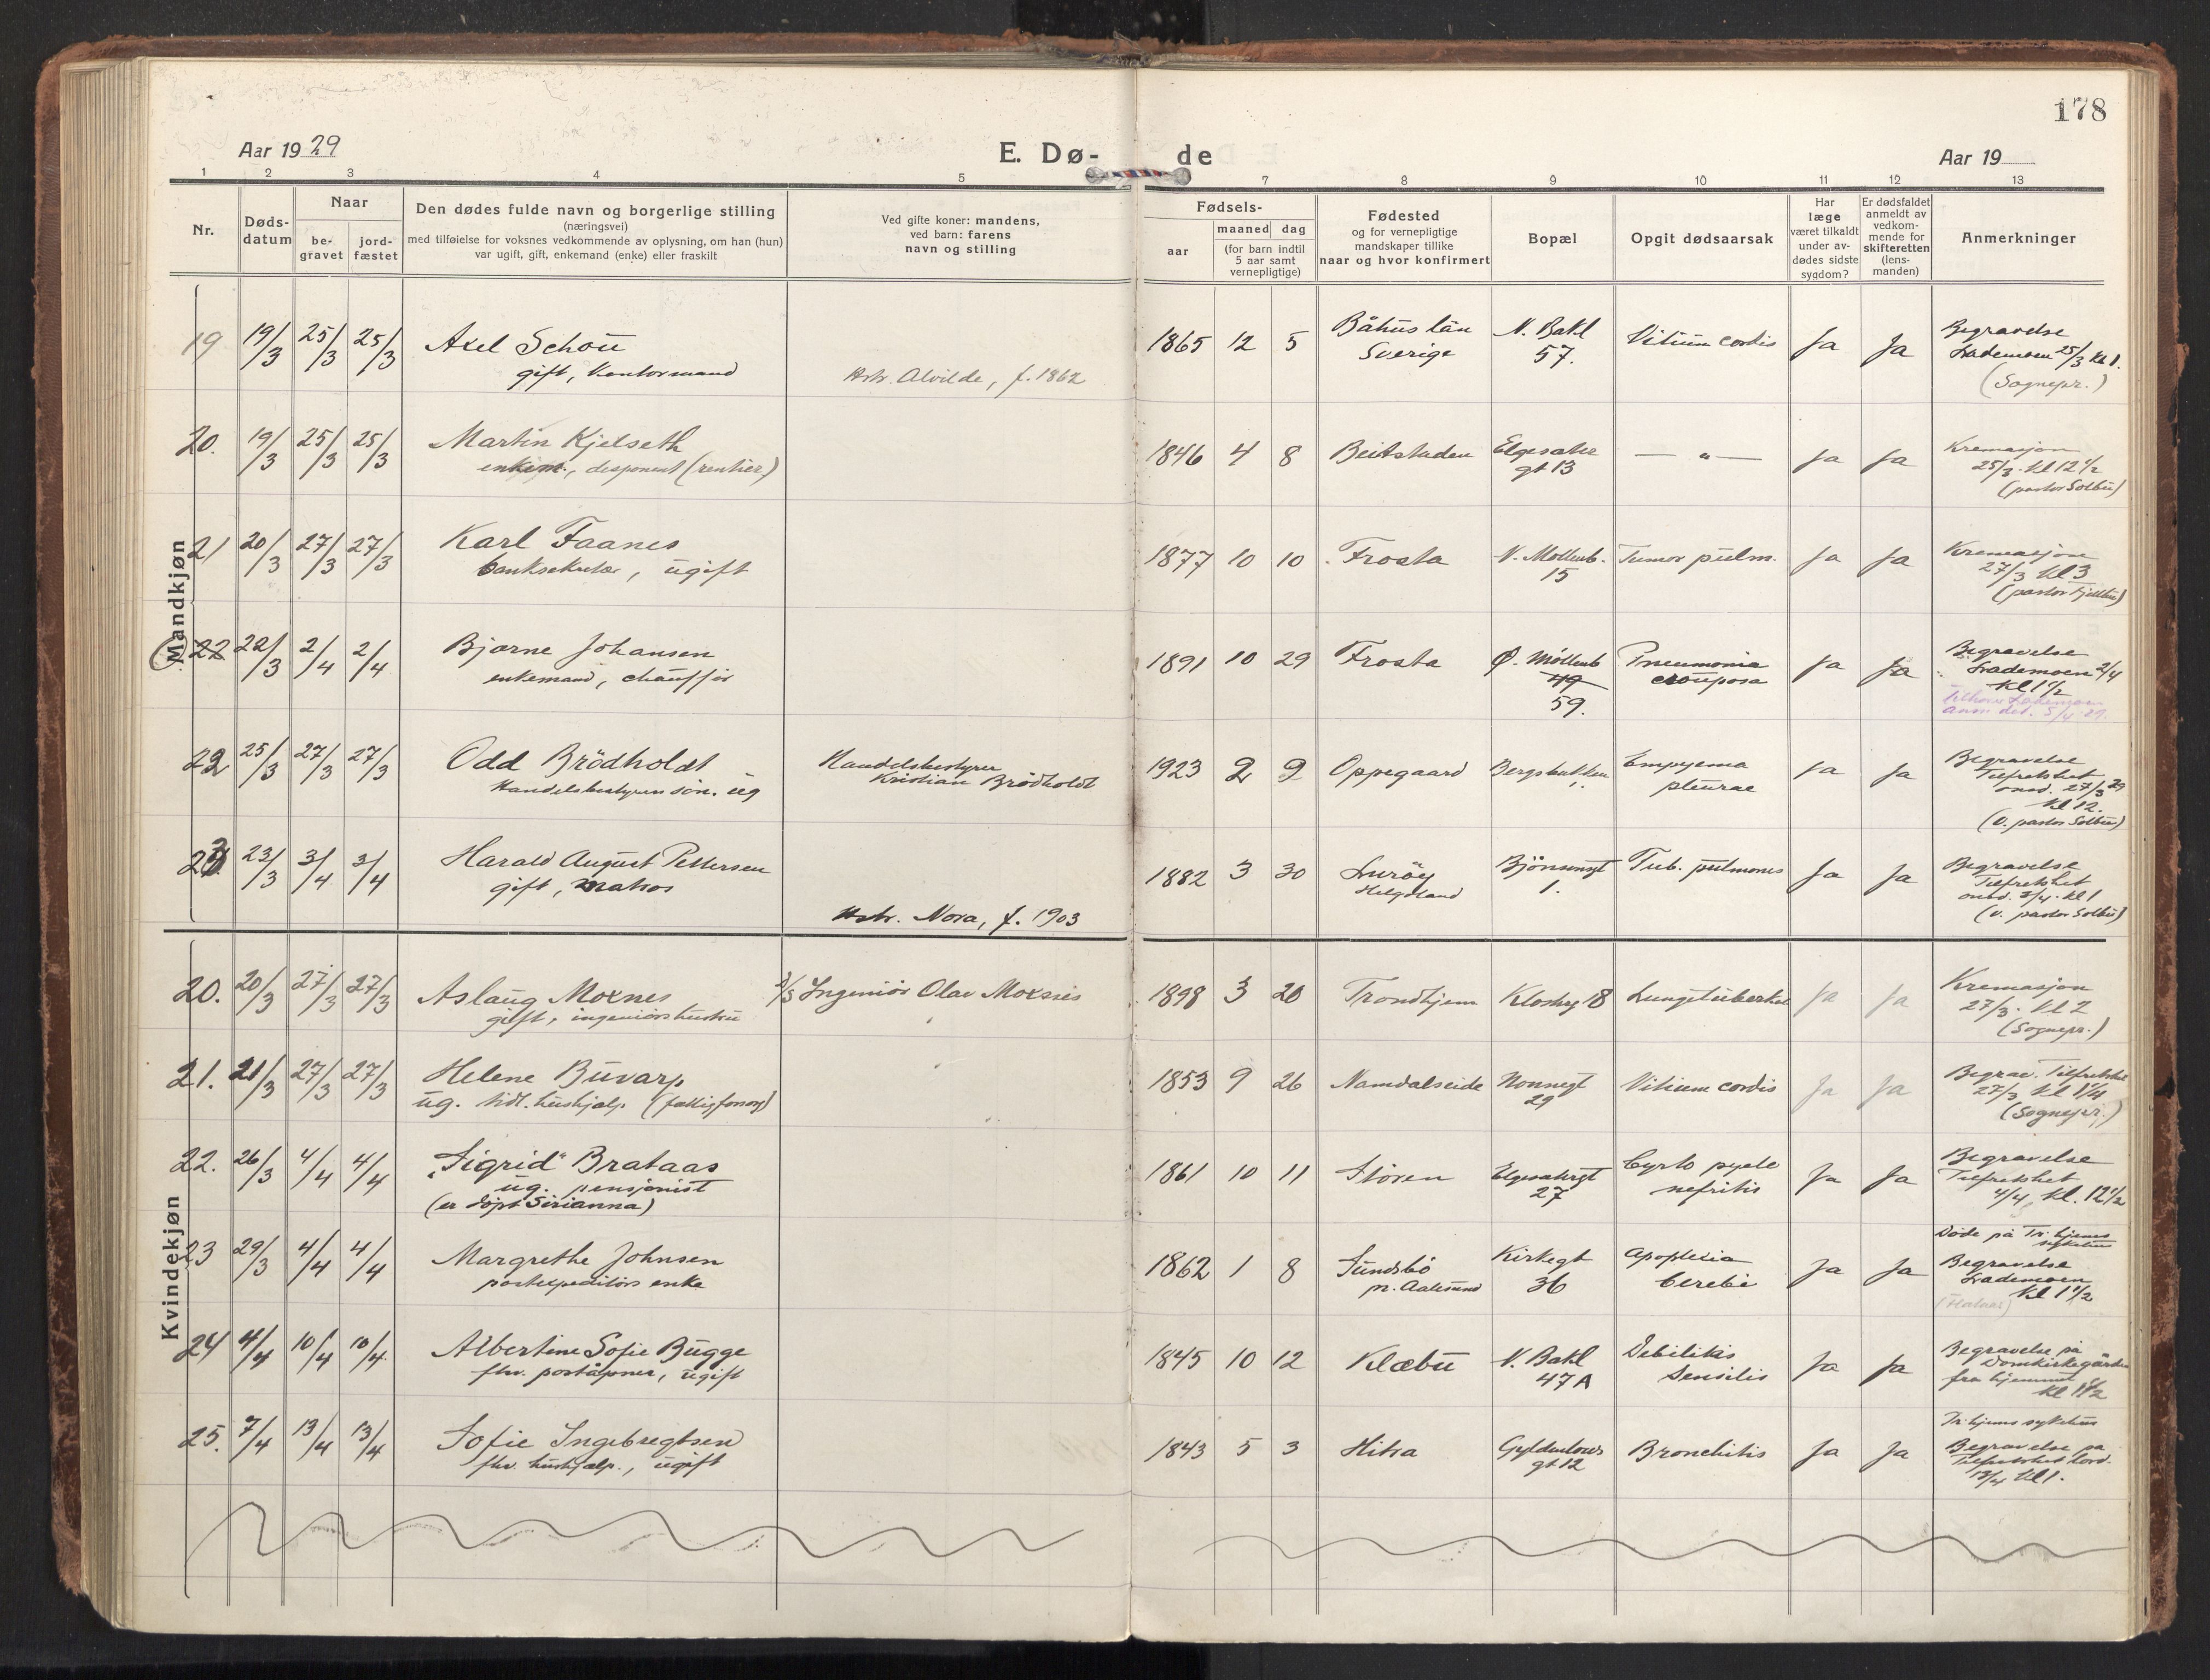 178
Aar 1929
E. Dø-
de
Aar 19
1 2 3 4 5 7 8 9 10 11 12 13
Nr.
Døds-
datum
Naar
be-
gravet
jord-
fæstet
Den dødes fulde navn og borgerlige stilling
(næringsvei)
med tilføielse for voksnes vedkommende av oplysning, om han (hun)
var ugift, gift, enkemand (enke) eller fraskilt
Ved gifte koner: mandens,
ved barn: farens
navn og stilling
Fødsels-
aar
maaned dag
(for barn indtil
5 aar samt
vernepligtige)
Fødested
og for vernepligtige
mandskaper tillike
naar og hvor konfirmert
Bopæl
Opgit dødsaarsak
Har
læge
været tilkaldt
under av-
dødes sidste
sygdom?
Er dødsfaldet
anmeldt av
vedkom-
mende for
skifteretten
(lens-
manden)
Anmerkninger
Mandkjøn
19 19/3 25/3 25/3 Axel Schou
gift, Kontormand
Hstr. Alvilde, f. 1862
1865 12 5 Båhus län
Sverige
N. Bakl
57.
Vitium cordis Ja Ja
Begravelse
Lademoen 25/3 Kl 1.
(Sognepr.)
20. 19/3 25/3 25/3 Martin Kjelseth
enkem., disponent (rentier)
1846 4 8 Beitstaden
Elgesæter
gt 13
— " — Ja Ja
Kremasjon
25/3. Kl 12 1/2
(pastor Solbu)
21 20/3 27/3 27/3 Karl Faanes
banksekretær, ugift
1877 10 10 Frosta
N. Møllenb.
15
Tumor pulm. Ja Ja
Kremasjon
27/3 Kl 3
(pastor Fjellbu)
22 22/3 2/4 2/4 Bjarne Johansen
enkemand, chauffør
1891 10 29 Frosta
Ø. Møllenb
49
59.
Pneumonia
crouposa
Ja Ja
Begravelse
Lademoen 2/4
Kl 1 1/2
5/4 29.
22 25/3 27/3 27/3 Odd Brödholdt
Handelsbestyrers sön. ug
Handelsbestyrer
Kristian Brödholdt
1923 2 9 Oppegaard Bergsbakken
Empyema
pleurae
Ja Ja
Begravelse
Tilfredshet
onsd. 27/3 29
Kl 12.
(v. pastor Solbu)
23 23/3 3/4 3/4 Harald August Pettersen
gift, matros
Hstr. Nora, f. 1903
1882 3 30 Luröy
Helgeland
Bjönsungt
1.
Tub. pulmones Ja Ja
Begravelse
Tilfredshet
onsd. 3/4. Kl 1
(v. pastor Solbu)
Kvindekjøn
20. 20/3 27/3 27/3 Aslaug Moxnes
gift, ingeniörshustru
Ingeniör Olav Moxnes
1898 3 20 Trondhjem Klosterg 18 Lungetuberkel Ja Ja
Kremasjon
27/3. Kl 2
(Sognepr.)
21. 21/3 27/3 27/3 Helene Buvarp
ug. tidl. hushjælp (fattigforsorg)
1853 9 26 Namdalseide
Nonnegt
29
Vitium cordis Ja Ja
Begrav. Tilfredshet
27/3 Kl 1 1/4
(Sognepr.)
22. 26/3 4/4 4/4 "Sigrid" Brataas
ug. pensjonist
(er döpt Sirianna)
1861 10 11 Stören
Elgesætergt
27
Cysto pyelo
nefritis
Ja Ja
Begravelse
Tilfredshet
4/4, Kl. 12 1/2
23 29/3 4/4 4/4 Margrethe Johnsen
postexpeditörs enke
1862 1 8 Sundsbö
pr. Aalesund
Kirkegt
36
Apoplexia
cerebri
Ja Ja
Döde på Tr.hjems
sykehus
Begravelse
Lademoen
Kl 1 1/2
24 4/4 10/4 10/4 Albertine Sofie Bugge
fhv. poståpner, ugift
1845 10 12 Klæbu
N. Bakl
47A
Debilitas
Senilis
Ja Ja
Begravelse på
Domkirkegården
fra hjemmet
Kl 1 1/2
25. 7/4 13/4 13/4 Sofie Ingebregtsen
fhv. hushjælp., ugift
1843 5 3 Hitra
Gyldenlöves
gt 12
Bronchitis Ja Ja
Tr.hjems sykehus
Begravelse på
Tilfredshet lörd.
13/4 Kl 1.